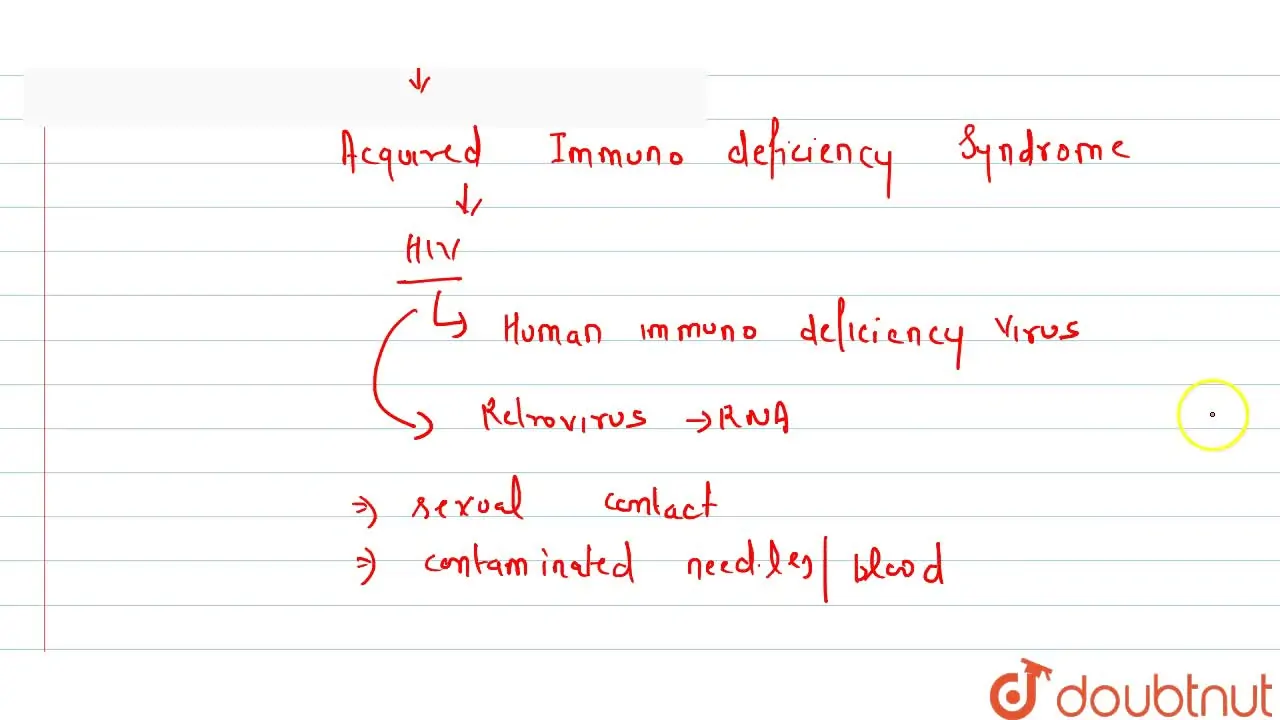 Acquired Immuno deficiency Syndrome
HIV
Human immuno deficiency Virus
Retrovirus → RNA
⇒ sexual contact
⇒ contaminated needles/blood
doubtnut